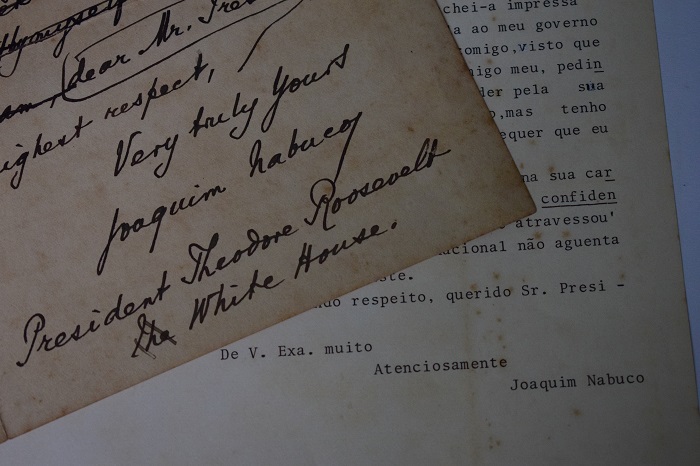 dear Mr.
highest respect,
Very truly Yours
Joaquim Nabuco
President Theodore Roosevelt
The White House.
chei-a impressa
a ao meu governo
omigo,visto que
migo meu, pedin
der pela sua
o,mas tenho
equer que eu
na sua car
confiden
atravessou'
acional não aguenta
ste.
do respeito, querido Sr. Presi -
De V. Exa. muito
Atenciosamente
Joaquim Nabuco